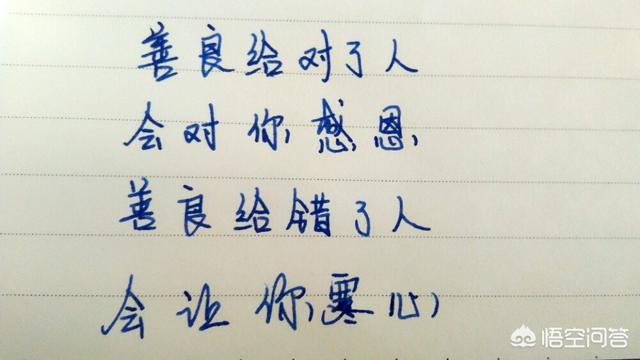 善良给对了人
会对你感恩
善良给错了人
会让你寒心
悟空问答